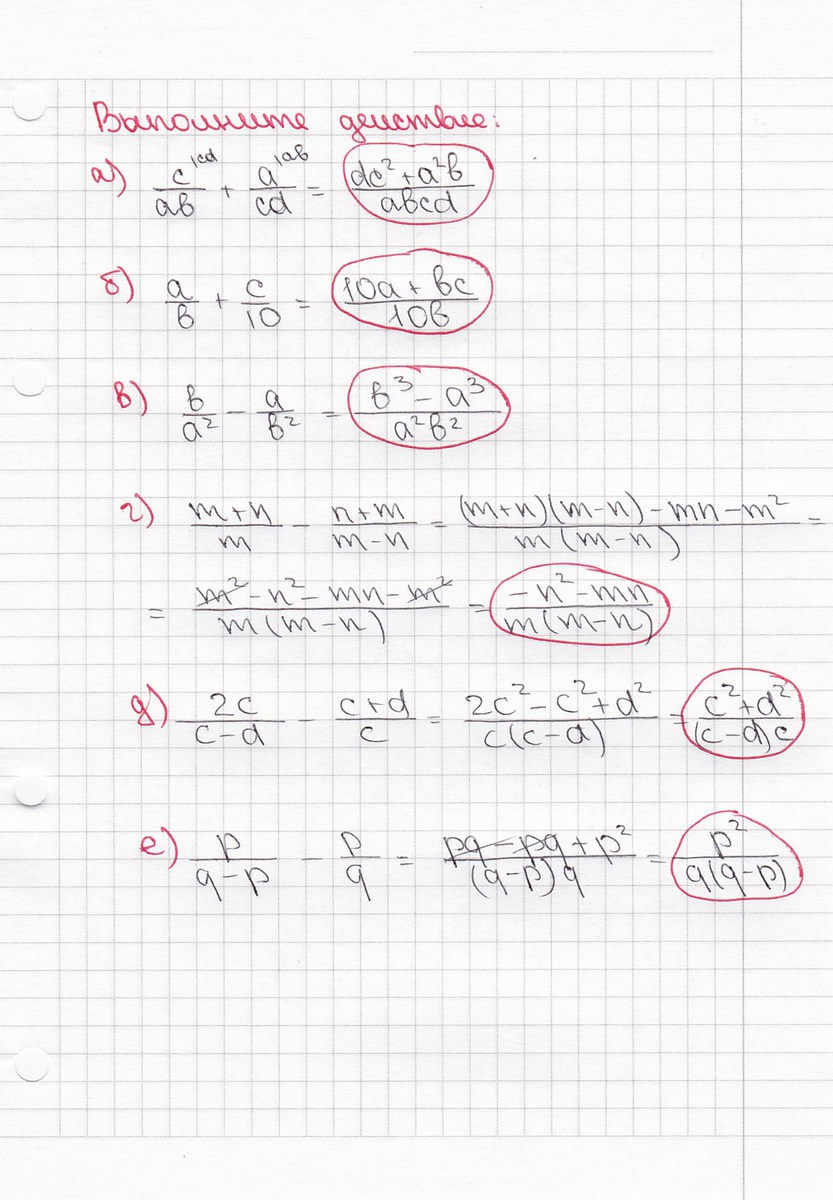 Выполните действие:
а) c^{|cd}/ab + a^{|ab}/cd = (dc² + a²b)/abcd
б) a/b + c/10 = (10a + bc)/10b
в) b/a² - a/b² = (b³ - a³)/a²b²
г) (m+n)/m - (n+m)/(m-n) = ((m+n)(m-n) - mn - m²)/m(m-n) =
= (m² - n² - mn - m²)/m(m-n) = (-n² - mn)/m(m-n)
д) 2c/(c-d) - (c+d)/c = (2c² - c² + d²)/c(c-d) = (c² + d²)/(c-d)c
е) p/(q-p) - p/q = (pq - pq + p²)/(q-p)q = p²/q(q-p)